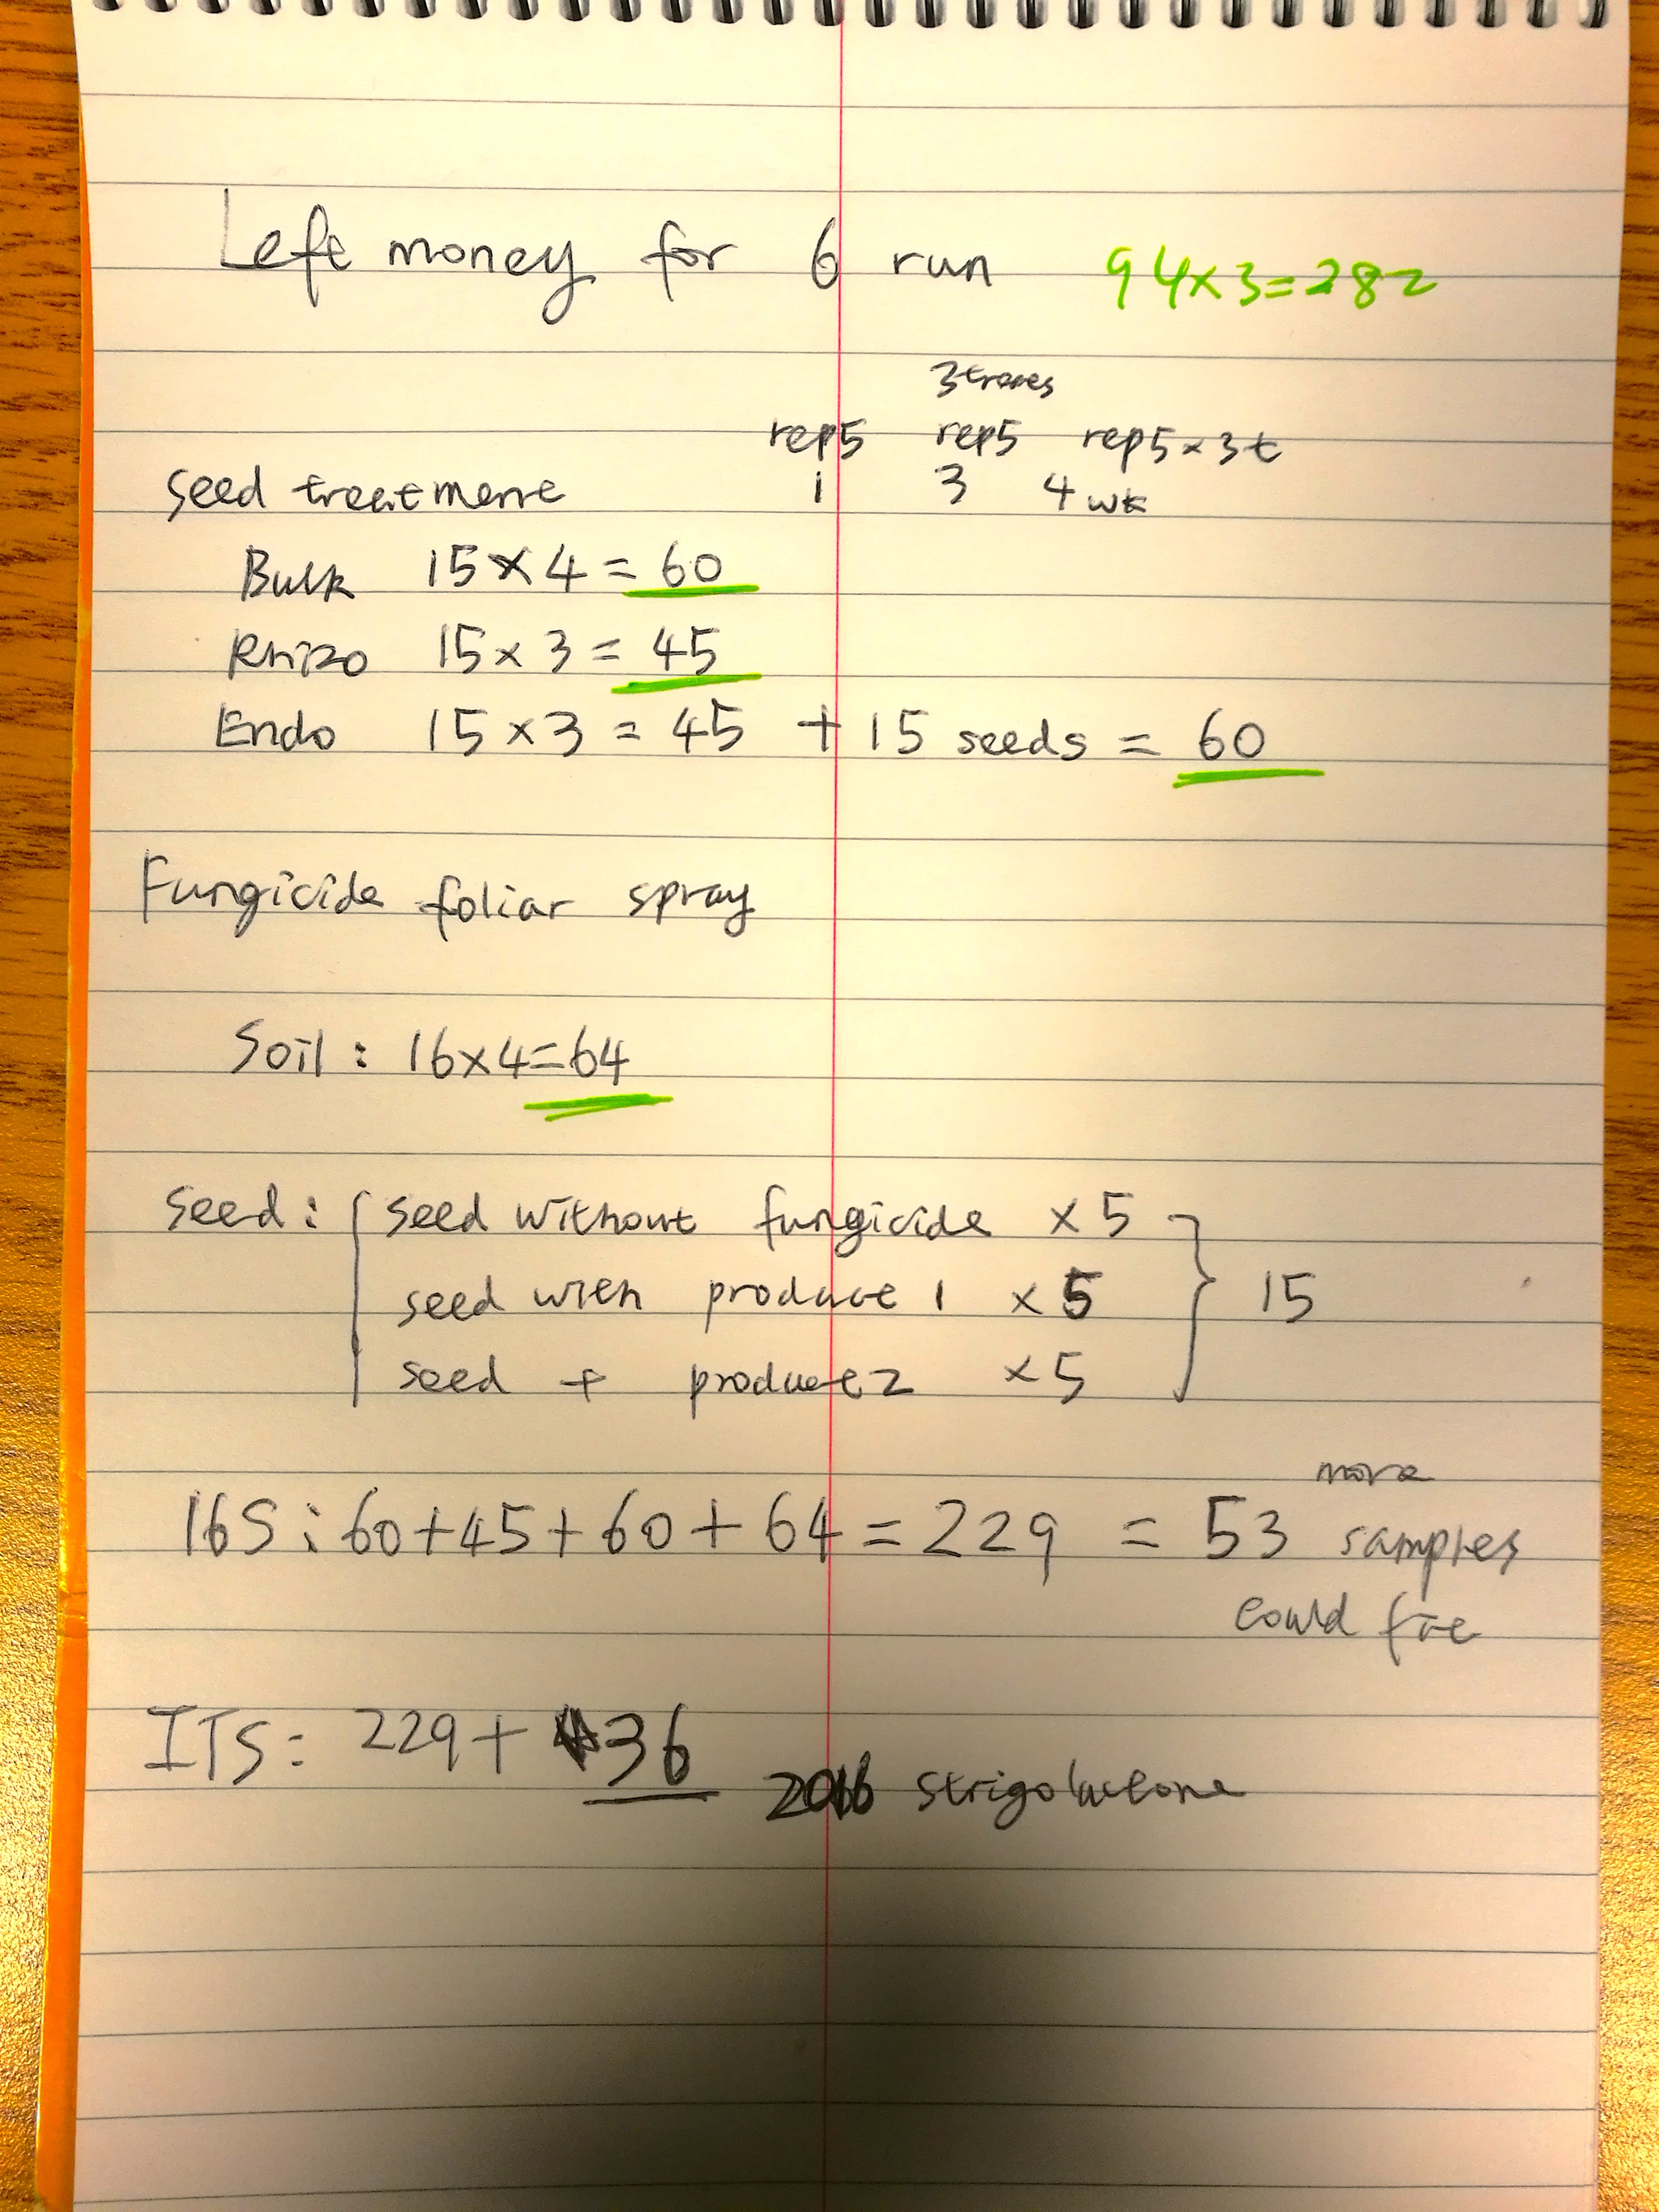 Left money for 6 run 94x3=282
3 treates
rep5 rep5 rep5 x 3t
seed treatment 1 3 4 wk
Bulk 15 x 4 = 60
Rhizo 15 x 3 = 45
Endo 15 x 3 = 45 + 15 seeds = 60
Fungicide foliar spray
Soil : 16x4=64
seed : seed without fungicide x 5
seed with product 1 x 5 15
seed + product 2 x 5
more
16S : 60+45+60+64 = 229 = 53 samples
could fit
ITS: 229 + 36
2016 strigolactone